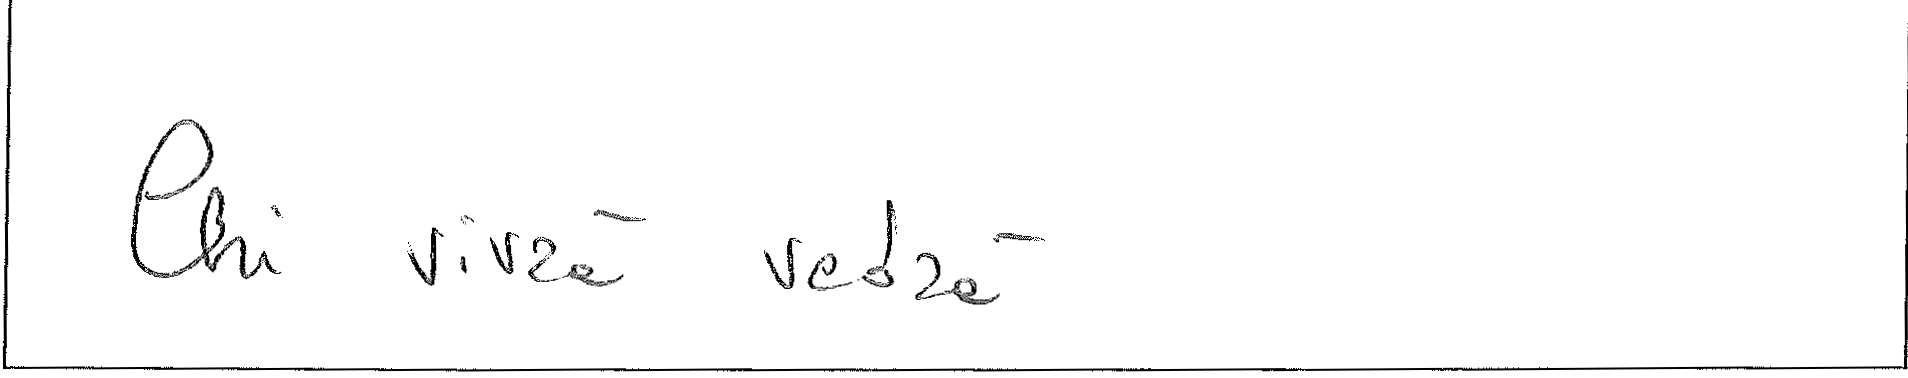 Chi vivrà vedrà